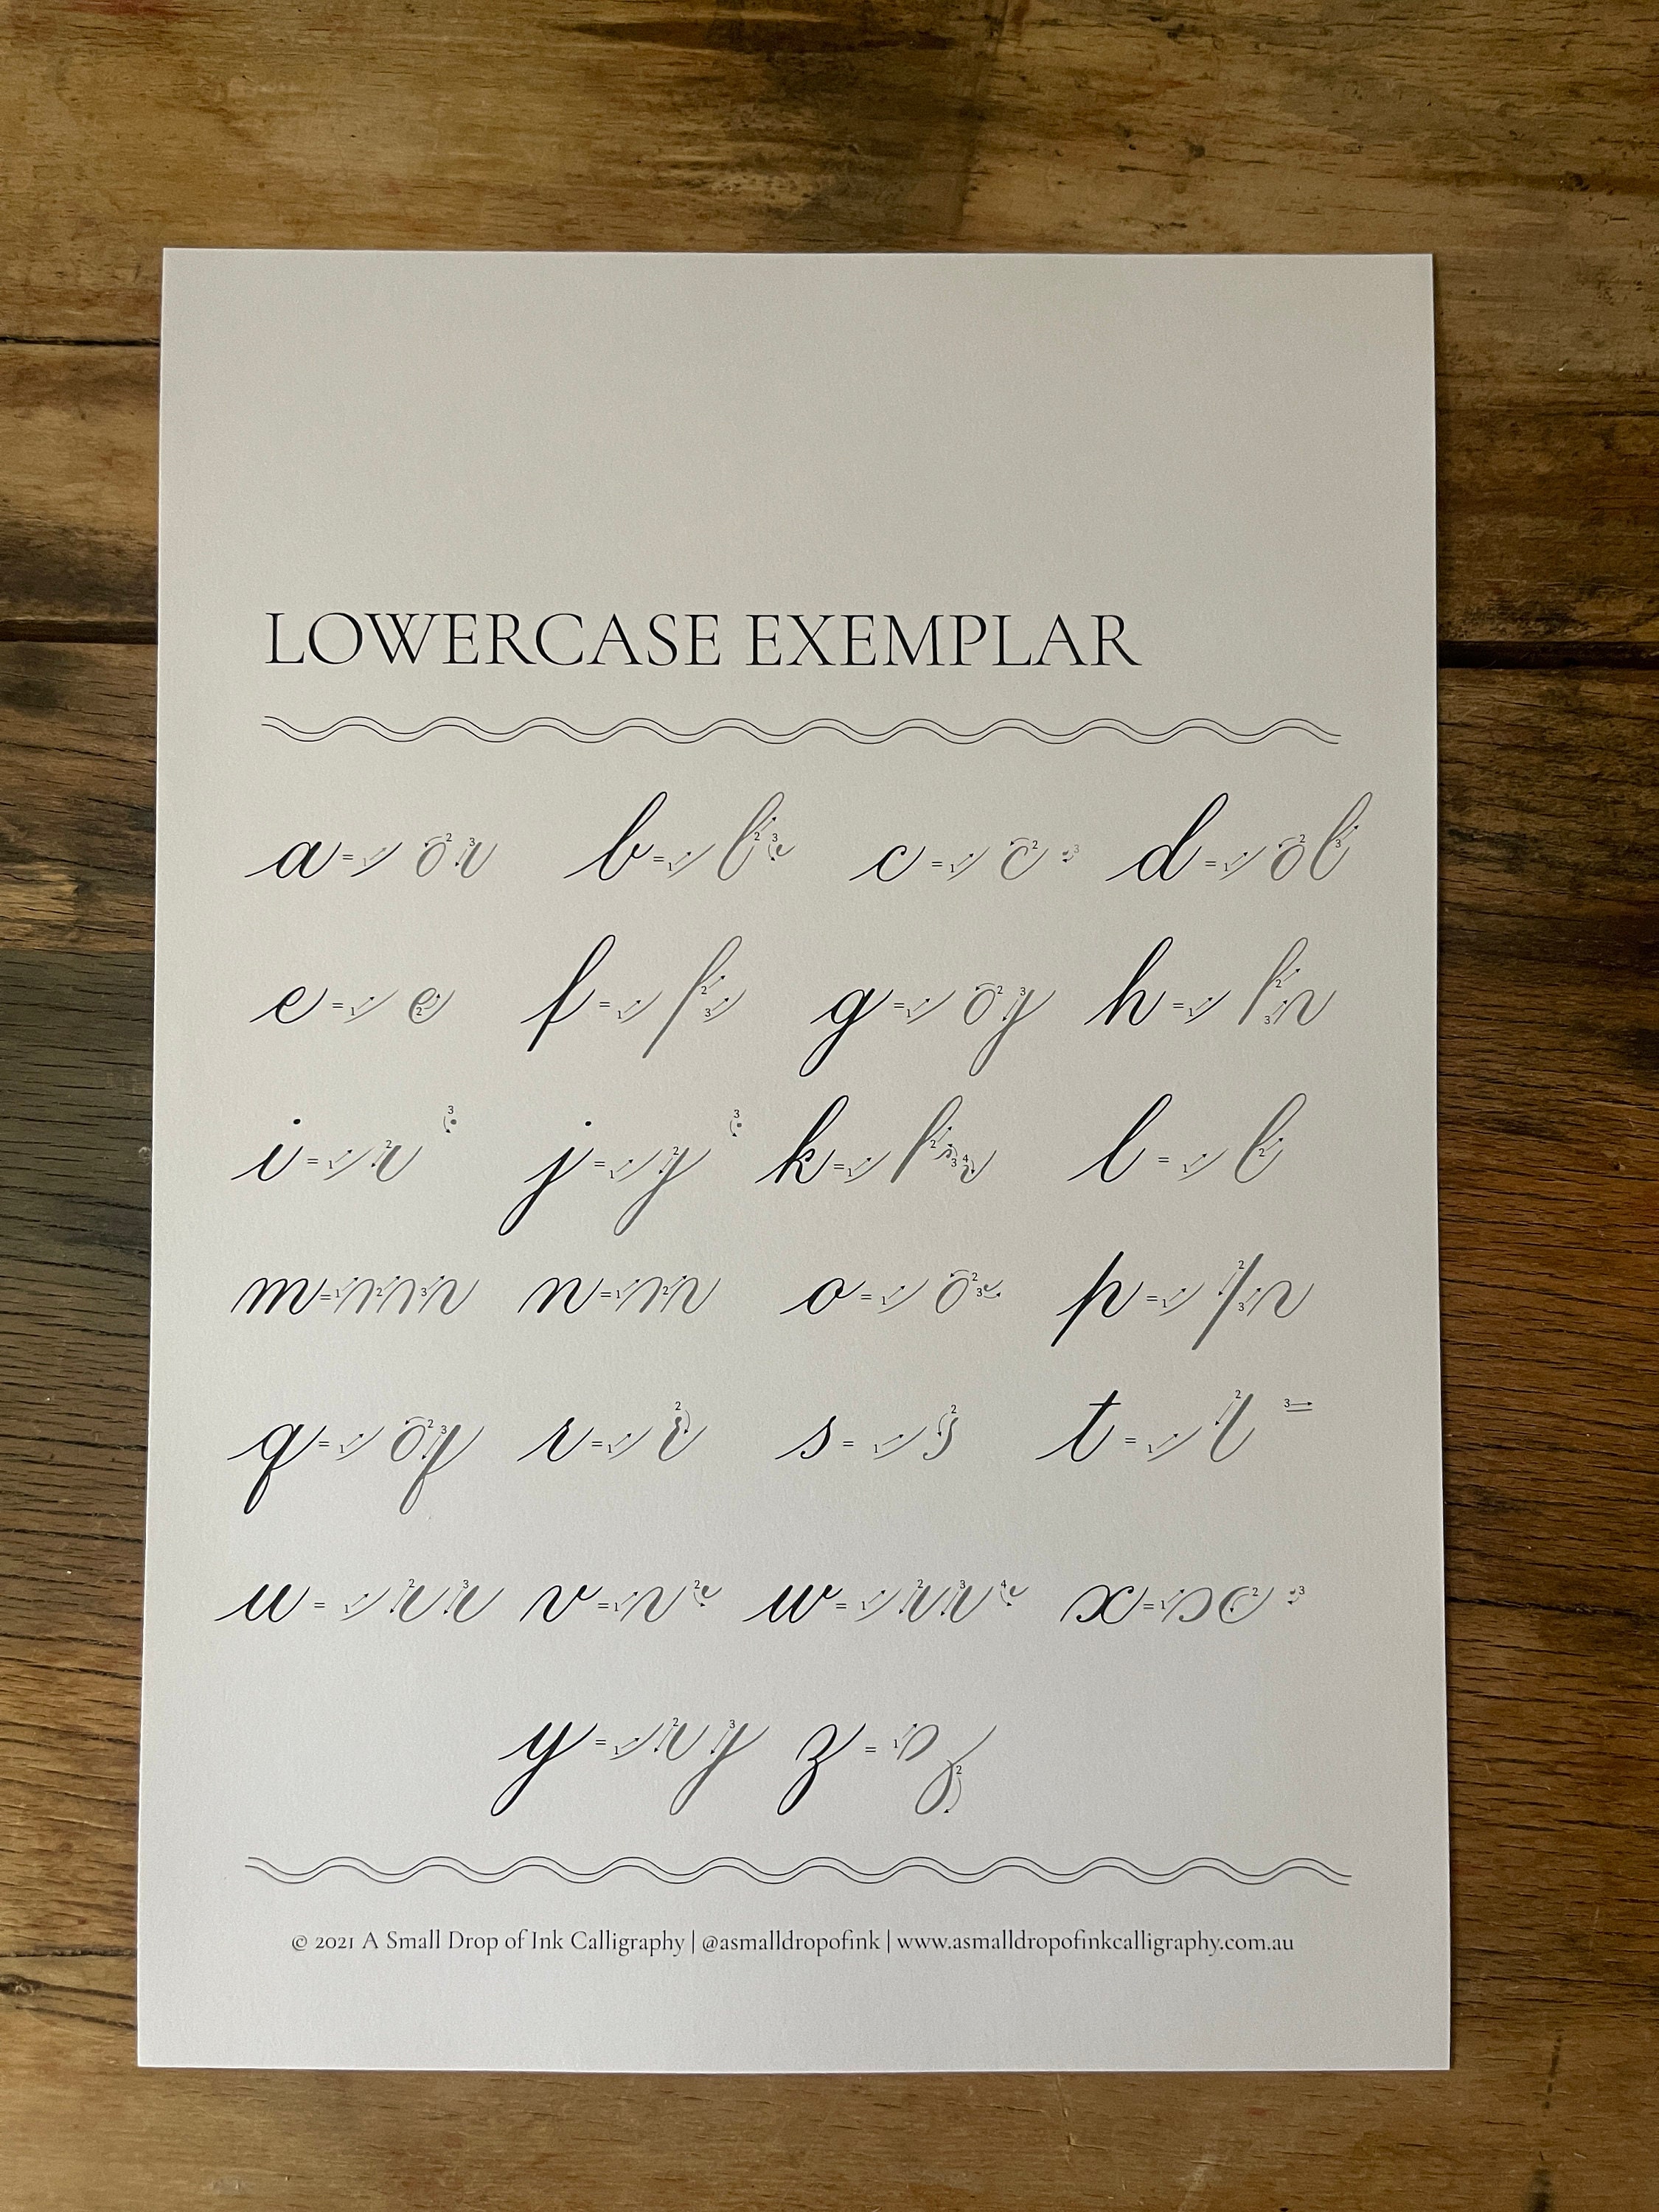 LOWERCASE EXEMPLAR
a = 1 2 3 b = 1 2 3 c = 1 2 3 d = 1 2 3
e = 1 2 f = 1 2 3 g = 1 2 3 h = 1 2 3
i = 1 2 3 j = 1 2 3 k = 1 2 3 4 l = 1 2
m = 1 2 3 n = 1 2 o = 1 2 3 p = 1 2 3
q = 1 2 3 r = 1 2 s = 1 2 t = 1 2 3
u = 1 2 3 v = 1 2 w = 1 2 3 4 x = 1 2 3
y = 1 2 3 z = 1 2
© 2021 A Small Drop of Ink Calligraphy | @asmalldropofink | www.asmalldropofinkcalligraphy.com.au